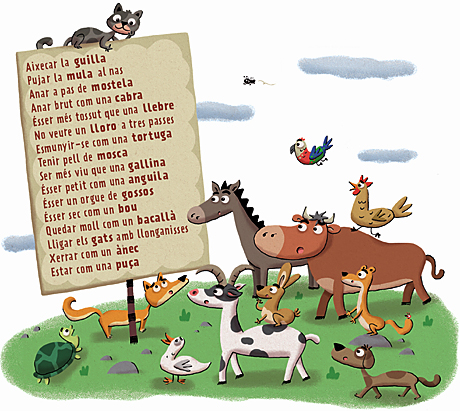 Aixecar la guilla
Pujar la mula al nas
Anar a pas de mostela
Anar brut com una cabra
Ésser més tossut que una llebre
No veure un lloro a tres passes
Esmunyir-se com una tortuga
Tenir pell de mosca
Ser més viu que una gallina
Ésser petit com una anguila
Ésser un orgue de gossos
Ésser sec com un bou
Quedar moll com un bacallà
Lligar els gats amb llonganisses
Xerrar com un ànec
Estar com una puça